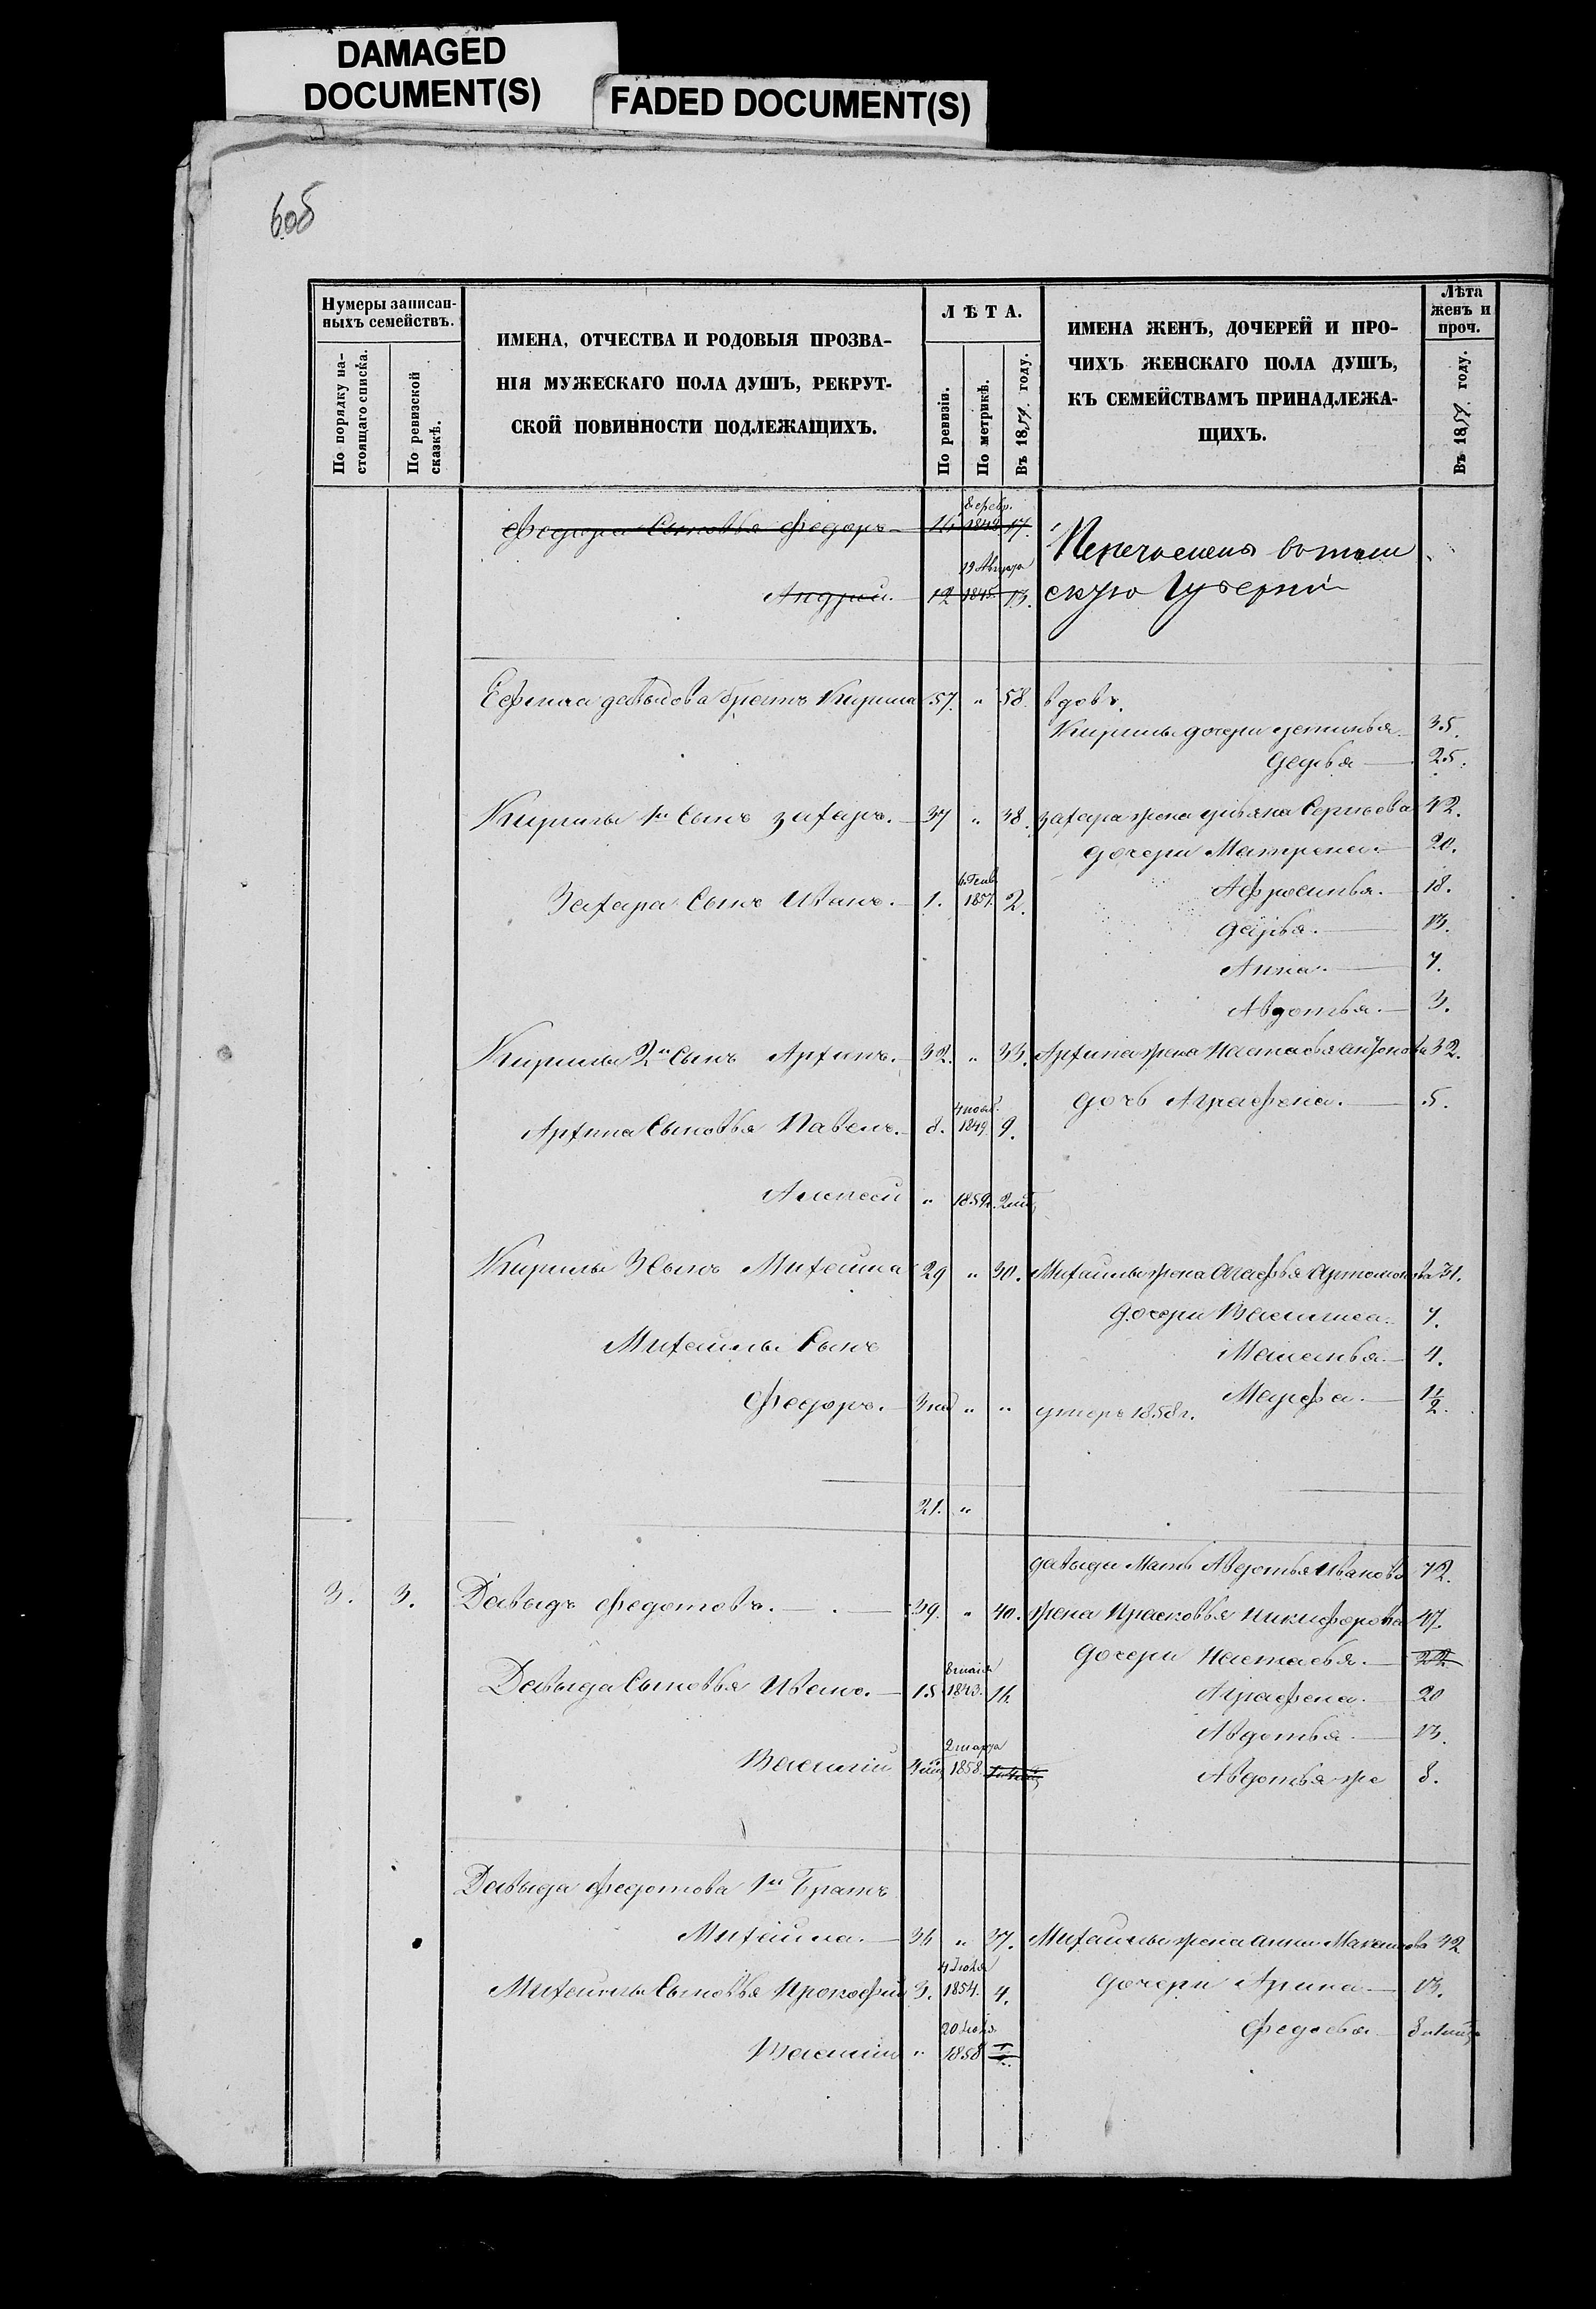 DAMAGED
DOCUMENT(S)
FADED DOCUMENT(S)
60б
Нумеры записан-
ныхъ семействъ.
По порядку на-
стоящаго списка.
По ревизской
сказкѣ.
ИМЕНА, ОТЧЕСТВА И РОДОВЫЯ ПРОЗВА-
НІЯ МУЖЕСКАГО ПОЛА ДУШЪ, РЕКРУТ-
СКОЙ ПОВИННОСТИ ПОДЛЕЖАЩИХЪ.
ЛѢТА.
По ревизіи.
По метрикѣ.
Въ 1859. году.
ИМЕНА ЖЕНЪ, ДОЧЕРЕЙ И ПРО-
ЧИХЪ ЖЕНСКАГО ПОЛА ДУШЪ,
КЪ СЕМЕЙСТВАМЪ ПРИНАДЛЕЖА-
ЩИХЪ.
Лѣта
женъ и
проч.
Въ 1859. году.
Федора Сыновья Федоръ 17.
Перечислены
скую Губернію
19 Августа
Андрей. 12 1845. 13.
Давыдова братъ Кирила 57. " 58. вдовъ.
Кирилы дочери 35.
Дарья 25.
Кирилы 1й Сынъ Захаръ. 37 " 38. Захара жена Ульяна Сергѣева 42.
дочери Матрена 20.
Афросинья. 18.
Захара Сынъ Иванъ. 1. 1857. 2.
Дарья. 13.
Анна. 7.
Авдотья. 3.
Кирилы 2й Сынъ Архипъ. 32. " 33. Архипа жена Настасья 32.
дочь Аграфена. 5.
Архипа Сыновья Павелъ. 8. 4 нояб. 1849 9.
Алексей " 1859.
Кирилы 3 Сынъ Михайла 29 " 30. Михайлы жена Агафья Артомонова 31.
дочери Василиса. 7.
Михайлы Сынъ
Меланья. 4.
Федоръ. " " умеръ 1858 г. Марфа. 1 1/2.
21. "
Давыда Мать Авдотья Иванова 72.
3. 3. Давыдъ Федотовъ. 39. " 40. жена Прасковья Никифорова 47.
дочери Настасья. 22.
Давыда Сыновья Иванъ. 15 8 маія 1843. 16. Аграфена. 20
Авдотья 13.
Василій 2 марта 1858. Авдотья же 8.
Давыда Федотова 1й Братъ
Михайла. 36 " 37. Михайлы жена Анна Максимова 42
Михайлы Сыновья Прокофій 3. 1854. 4. дочери Арина 13.
Федосья
Василій " 1858